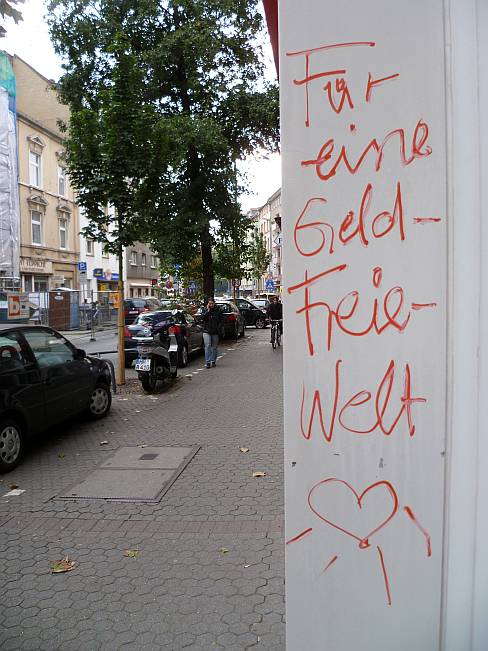 Für
eine
Geld-
Freie-
Welt